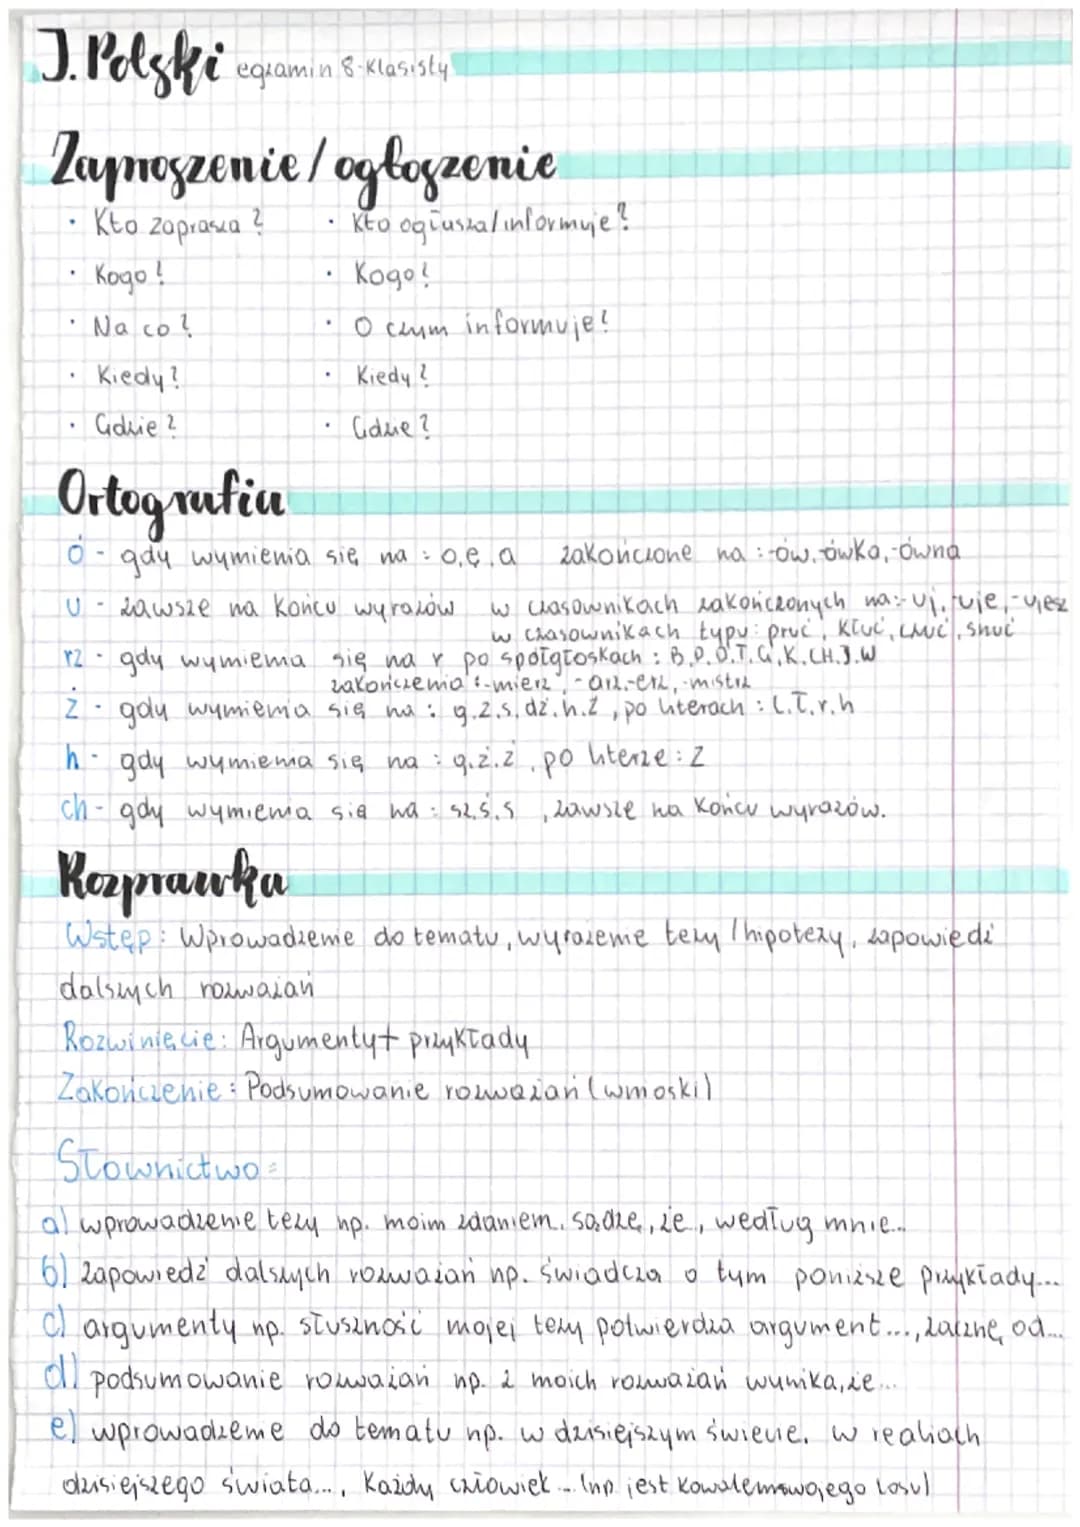 J. Polski egzamin 8-klasisty
Zaproszenie/ogłoszenie
· Kto zaprasza? · Kto ogłasza/informuje?
· Kogo? · Kogo?
· Na co? · O czym informuje?
· Kiedy? · Kiedy?
· Gdzie? · Gdzie?
Ortografia
ó - gdy wymienia się na : o,ę,a zakończone na :-ów,-ówka,-ówna
u - zawsze na końcu wyrazów w czasownikach zakończonych na:-uj,-uje,-ujesz
w czasownikach typu: pruć, kłuć, czuć, snuć
rz - gdy wymienia się na r po spółgłoskach : B.P.D.T.G.K.CH.J.W
zakończenia :-mierz, -arz,-erz, -mistrz
ż - gdy wymienia się na : g.z.s.dz.h.ź, po literach : l.ł.r.h
h - gdy wymienia się na : g.ż.z, po literze : z
ch - gdy wymienia się na : sz.ś.s, zawsze na końcu wyrazów.
Rozprawka
Wstęp : Wprowadzenie do tematu, wyrażenie tezy/hipotezy, zapowiedź
dalszych rozważań
Rozwinięcie: Argumenty+ przykłady
Zakończenie : Podsumowanie rozważań (wnioski)
Słownictwo :
a) wprowadzenie tezy np. moim zdaniem, sądzę, że, według mnie...
b) zapowiedź dalszych rozważań np. świadczą o tym poniższe przykłady...
c) argumenty np. słuszność mojej tezy potwierdza argument..., zacznę od...
d) podsumowanie rozważań np. z moich rozważań wynika, że...
e) wprowadzenie do tematu np. w dzisiejszym świecie, w realiach
dzisiejszego świata..., Każdy człowiek... (np. jest kowalem swojego losu)